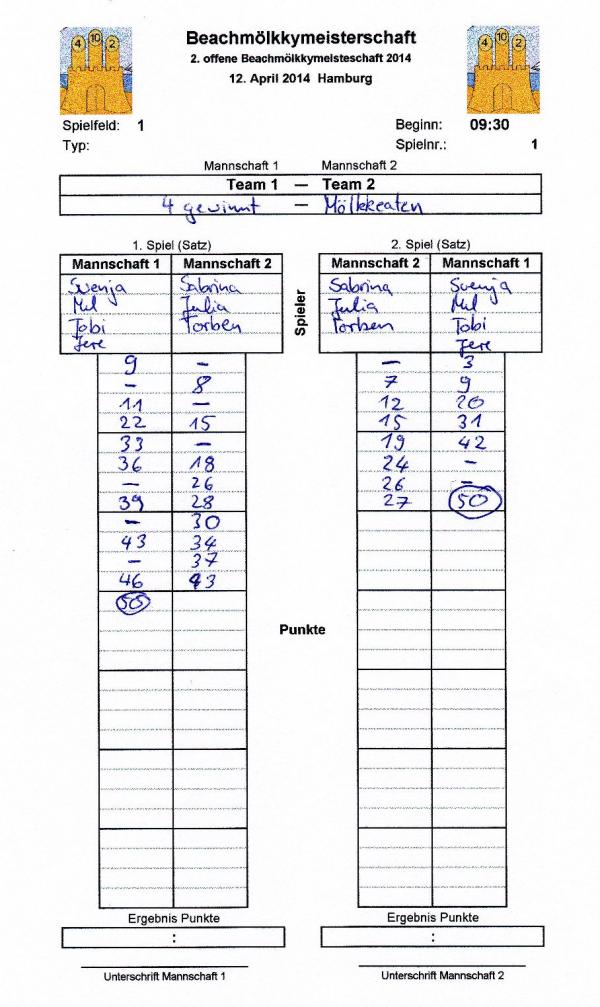 4 10 2 Beachmölkkymeisterschaft 4 10 2
2. offene Beachmölkkymeisteschaft 2014
12. April 2014 Hamburg
Spielfeld: 1 Beginn: 09:30
Typ: Spielnr.: 1
Mannschaft 1 Mannschaft 2
Team 1 — Team 2
4 gewinnt — Mölkkeaten
1. Spiel (Satz) 2. Spiel (Satz)
Mannschaft 1 Mannschaft 2 Mannschaft 2 Mannschaft 1
Svenja Sabrina Sabrina Svenja
Mel Julia Julia Mel
Tobi Torben Torben Tobi
Jere Jere
Spieler
9 – – 3
– 8 7 9
11 – 12 20
22 15 15 31
33 – 19 42
36 18 24 –
– 26 26 –
39 28 27 50
– 30
43 34
– 37
46 43
50
Punkte
Ergebnis Punkte Ergebnis Punkte
: :
Unterschrift Mannschaft 1 Unterschrift Mannschaft 2